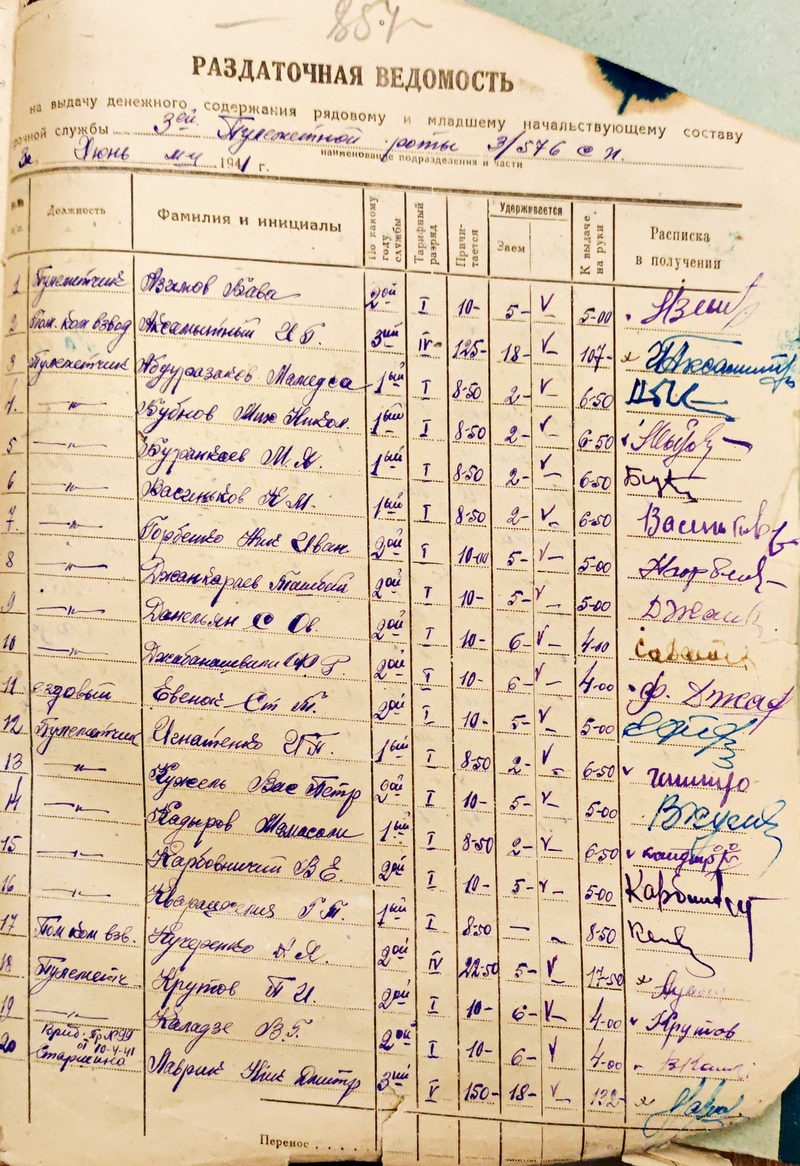 857
РАЗДАТОЧНАЯ ВЕДОМОСТЬ
на выдачу денежного содержания рядовому и младшему начальствующему составу
рочной службы 3ей Пулеметной роты 3/576 с п.
наименование подразделения и части
За Июнь м-ц 1941 г.
Должность Фамилия и инициалы По какому году службы Тарифный разряд Причитается Удерживается Заем К выдаче на руки Расписка в получении
1 Пулеметчик Азимов Бава 2ой I 10- 5- V 5-00
2 Пом. ком взвод Аксамытный И Г. 3ий IV 125- 18- V 107-
3 Пулеметчик Абдуразаков Мамедса 1ый I 8-50 2- V 6-50
4. -"- Бубнов Мих Никол. 1ый I 8-50 2- V 6-50
5 -"- Буранкаев М. А. 1ый I 8-50 2- V 6-50
6 -"- Васиньков К. М. 1ый I 8-50 2- V 6-50
7. -"- Горбенко Ник Иван 2ой I 10-00 5- V 5-00
8 -"- Джанкараев Ташбай 2ой I 10- 5- V 5-00 Джанк
9 -"- Данельян С Ов. 2ой I 10- 6- V 4-00
10 -"- Джабанашвили Ф Г. 2ой I 10- 6- V 4-00 ф. Джаф
11 ездовый Евенок Ст Т. 2ой I 10- 5- V 5-00
12 Пулеметчик Игнатенко И Т. 1ый I 8-50 2- V 6-50
13 -"- Кужель Вас Петр 2ой I 10- 5- V 5-00
14 -"- Кадыров Мамасали 1ый I 8-50 2- V 6-50
15 -"- Карбовничий В Е. 2ой I 10- 5- V 5-00
16 -"- Г Т. 1ый I 8-50 — 8-50
17 Пом ком взв. Кучеренко Д. Я. 2ой IV 22-50 5- V 17-50
18 Пулеметч. Крутов Т И. 2ой I 10- 6- V 4-00 Крутов
19 -"- Каладзе В. Г. 2ой I 10- 6- V 4-00
20 Старшина Лаврик Ник Дмитр 3ий V 150- 18- V 132-
Перенос . . . . .